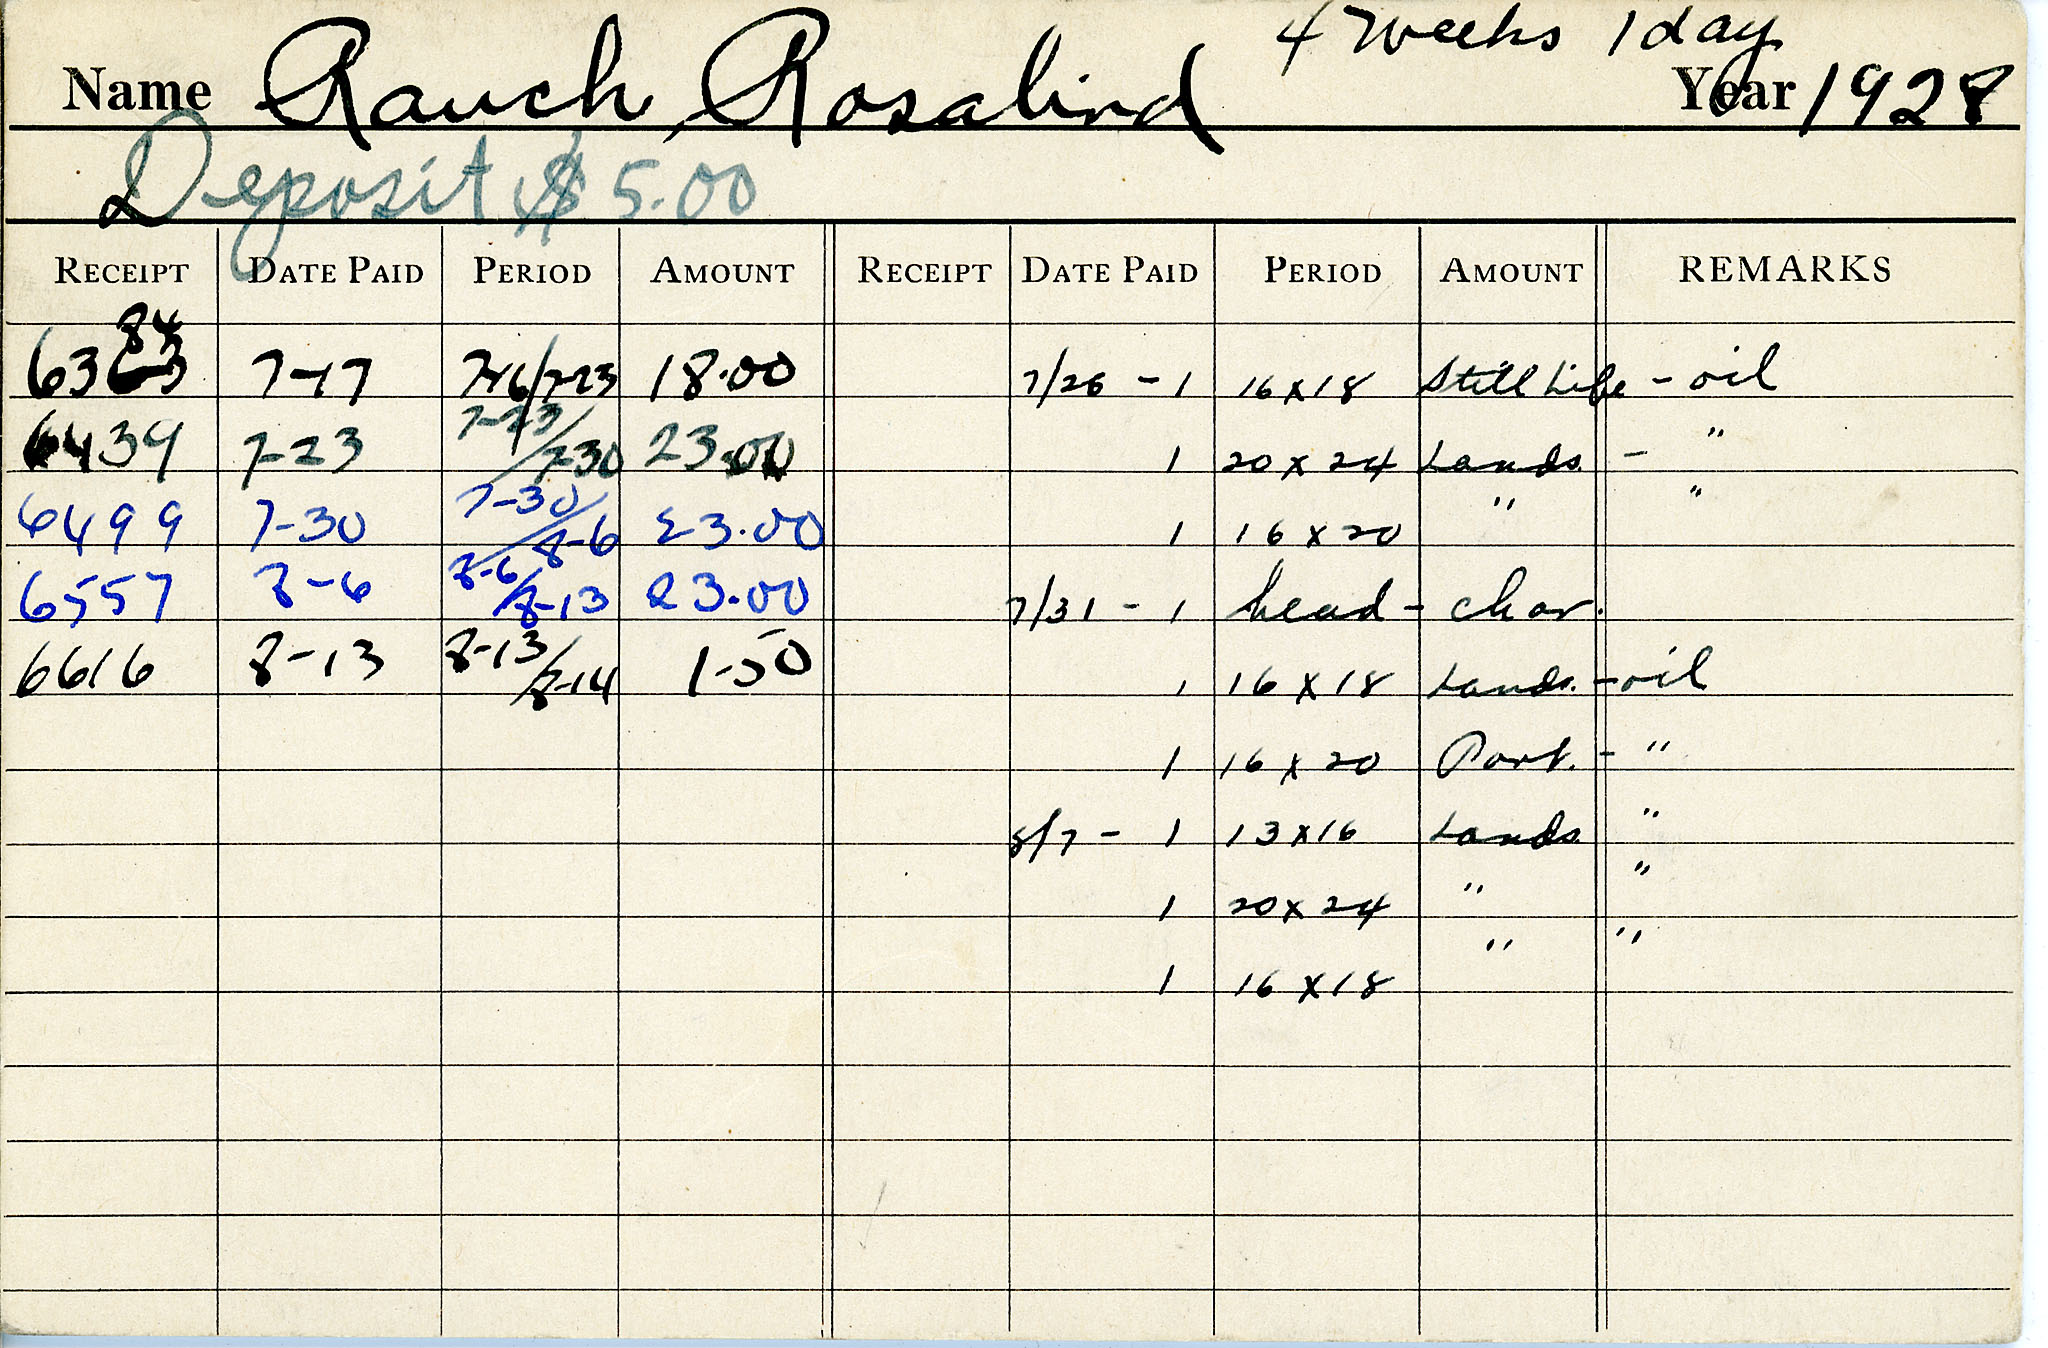 4 weeks 1 day
Name Rauch, Rosalind Year 1928
Deposit $5.00
RECEIPT DATE PAID PERIOD AMOUNT RECEIPT DATE PAID PERIOD AMOUNT REMARKS
84
6363 7-17 7-16/7-23 18.00 7/26 - 1 16 x 18 Still Life - oil
6439 7-23 7-23/7-30 23.00 1 20 x 24 Lands. - "
6499 7-30 7-30/8-6 23.00 1 16 x 20 " "
6557 8-6 8-6/8-13 23.00 7/31 - 1 head - char.
6616 8-13 8-13/8-14 1-50 1 16 x 18 Lands. - oil
1 16 x 20 Port. - "
8/7 - 1 13 x 16 Lands. "
1 20 x 24 " "
1 16 x 18 " "